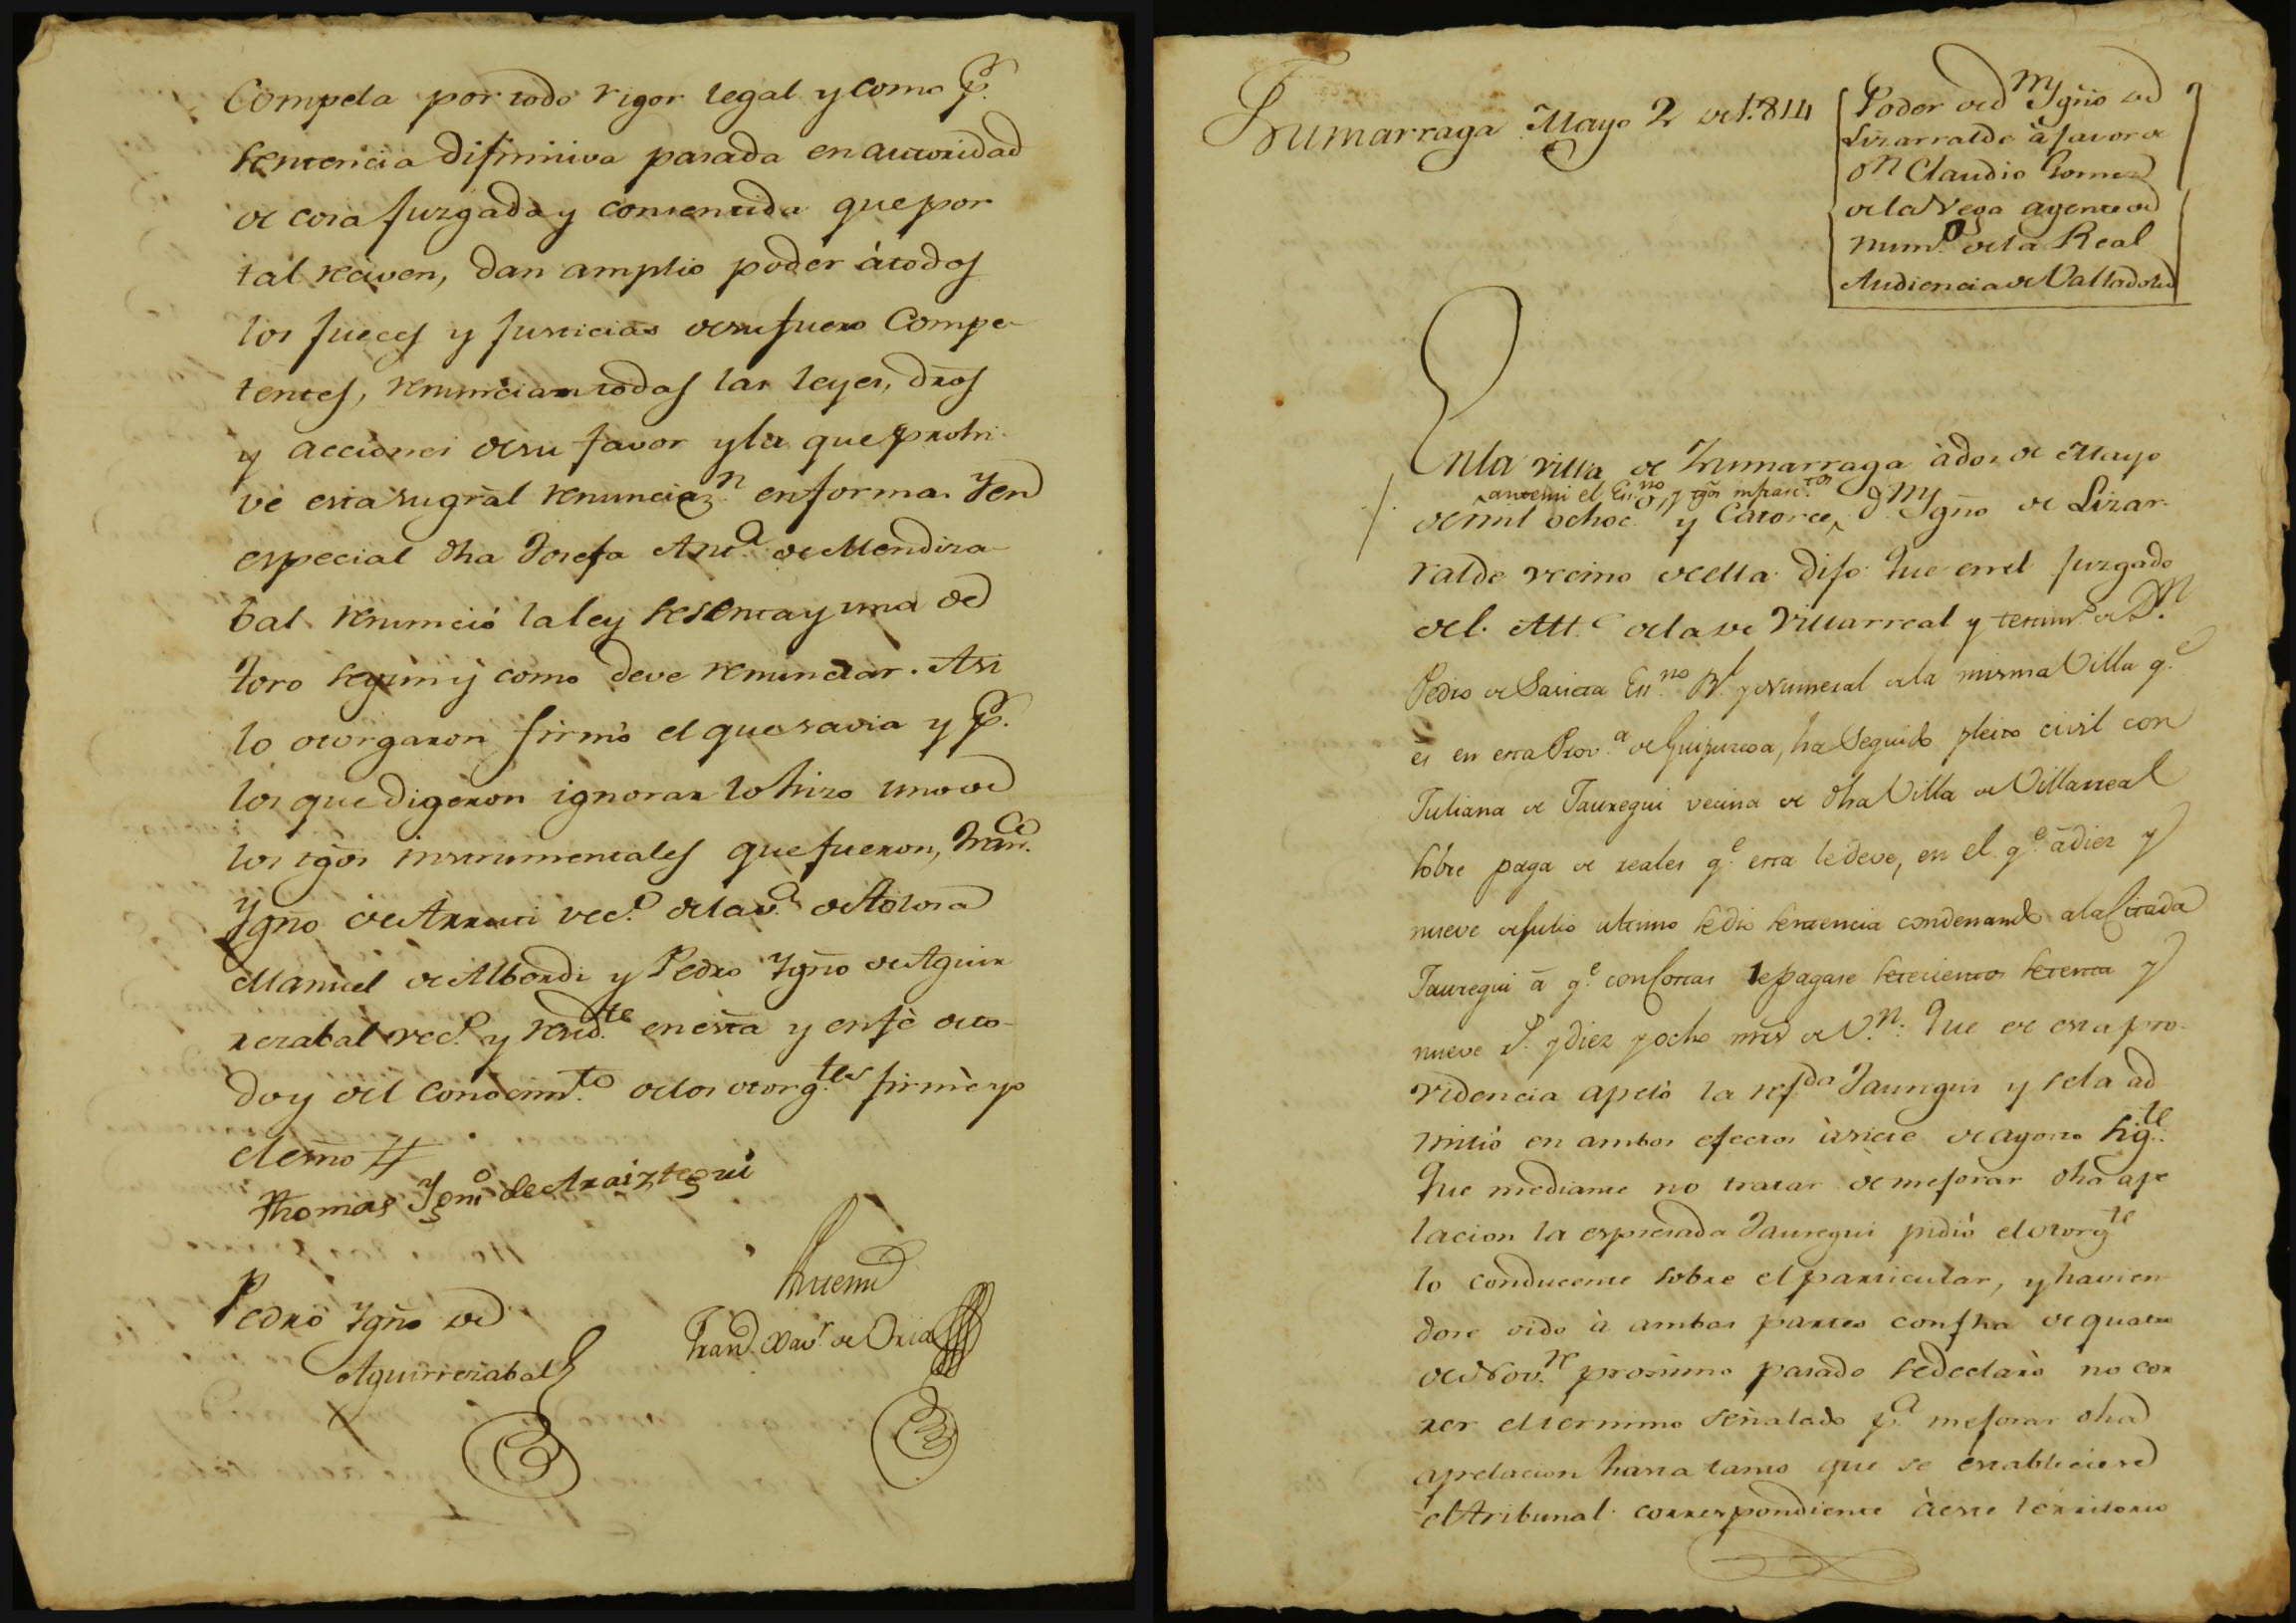 Compela por todo rigor legal y como p.r
sentencia difinitiva pasada en autoridad
de cosa juzgada y consentida que por
tal reciven, dan amplio poder à todos
los jueces y justicias de su fuero Compe-
tentes, renuncian todas las leyes, dros
y acciones de su favor y la que prohi-
ve esta su gral renunciaz.n en forma. Y en
especial dha Josefa Ant.a de Mendiza-
bal renunció la ley sesenta y una de
toro segun y como deve renunciar. Asi
lo otorgaron firmó el que savia y p.r
los que digeron ignorar lo hizo uno de
los tgos instrumentales que fueron,
Ygño de Arruti vec.o de la v.a de Tolosa
Manuel de Alberdi y Pedro Ygño de Aguir
rezabal vec.s y resid.te en esta y en fè de to-
do y del conocim.to de los otorg.tes firmè yo
el esno
Thomas Ygni.o de Araiztegui
Antemi
Pedro Ygño de
Aguirrezabal
Fran.co Xav.r de Oria
Zumarraga Mayo 2 de 1.814
Poder de d.n Ygño de
Lizarralde à favor de
d.n Claudio Gomez
de la Vega agente de
num.o de la Real
Audiencia de Valladolid
En la villa de Zumarraga à dos de Mayo
ante mi el Es.no y tgos infrasc.tos
de mil ochoc.os y Catorce, d.n Ygño de Lizar-
ralde vecino de ella dijo: Que en el juzgado
del Alc.e de la de Villarreal y testim.o de D.n
Pedro de Sasieta Es.no R.l y Numeral de la misma Villa q.e
es en esta Prov.a de Guipuzcoa, ha seguido pleito civil con
Juliana de Jauregui vecina de dha Villa de Villarreal
sobre paga de reales q.e esta le deve, en el q.e à diez y
nueve de Julio ultimo se dió sentencia condenando a la Citada
Jauregui à q.e con Costas le pagase setecientos setenta y
nueve r.s y diez y ocho mrs de v.n: Que de esta pro-
videncia apeló la ref.da Jauregui y se la ad
mitió en ambos efectos à siete de agosto sig.te:
Que mediante no tratar de mejorar dha ape
lacion la espresada Jauregui pidió el otorg.te
lo conducente sobre el particular, y havien
dose oido à ambas partes con fha de quatro
de Nov.re procsimo pasado se declaró no cor
rer el termino señalado p.a mejorar dha
apelacion hasta tanto que se estableciere
el tribunal correspondiente à este territorio